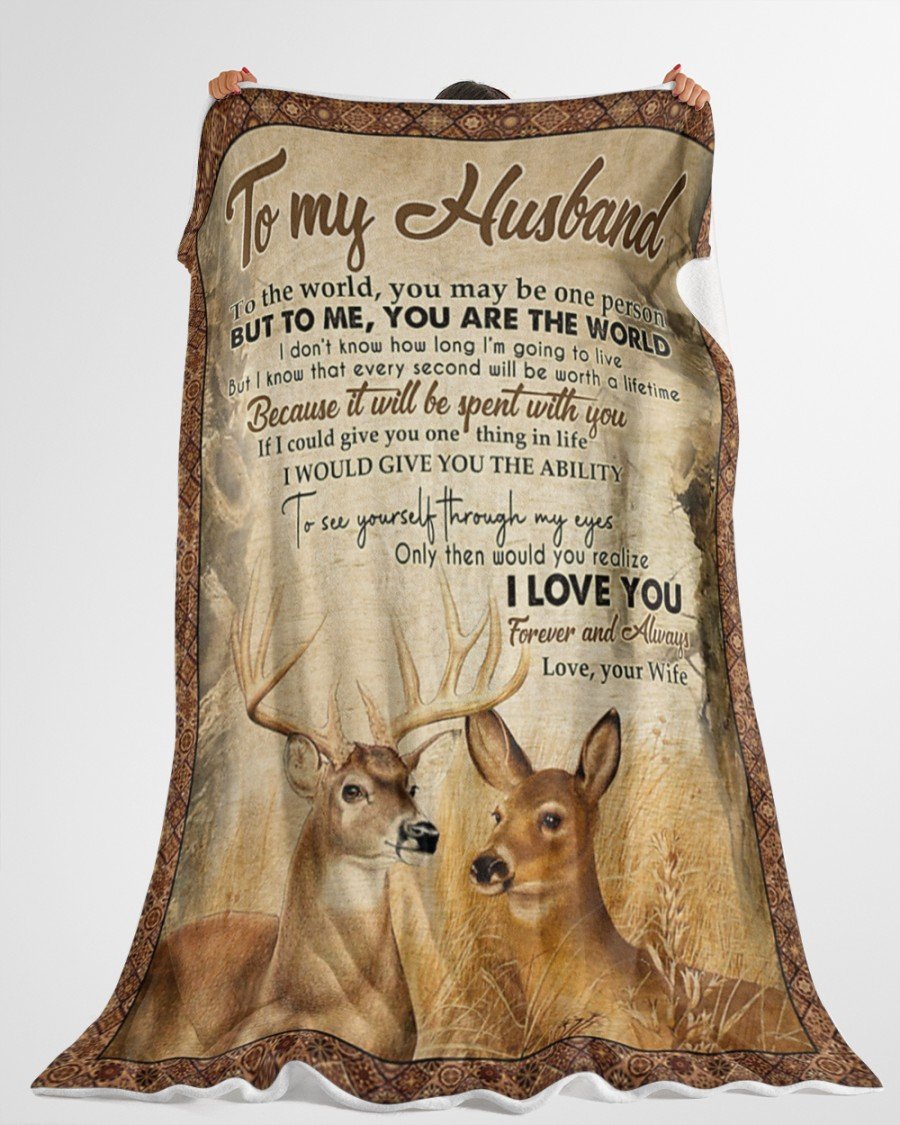 To my Husband
To the world, you may be one person
BUT TO ME, YOU ARE THE WORLD
I don't know how long I'm going to live
But I know that every second will be worth a lifetime
Because it will be spent with you
If I could give you one thing in life
I WOULD GIVE YOU THE ABILITY
To see yourself through my eyes
Only then would you realize
I LOVE YOU
Forever and Always
Love, your Wife